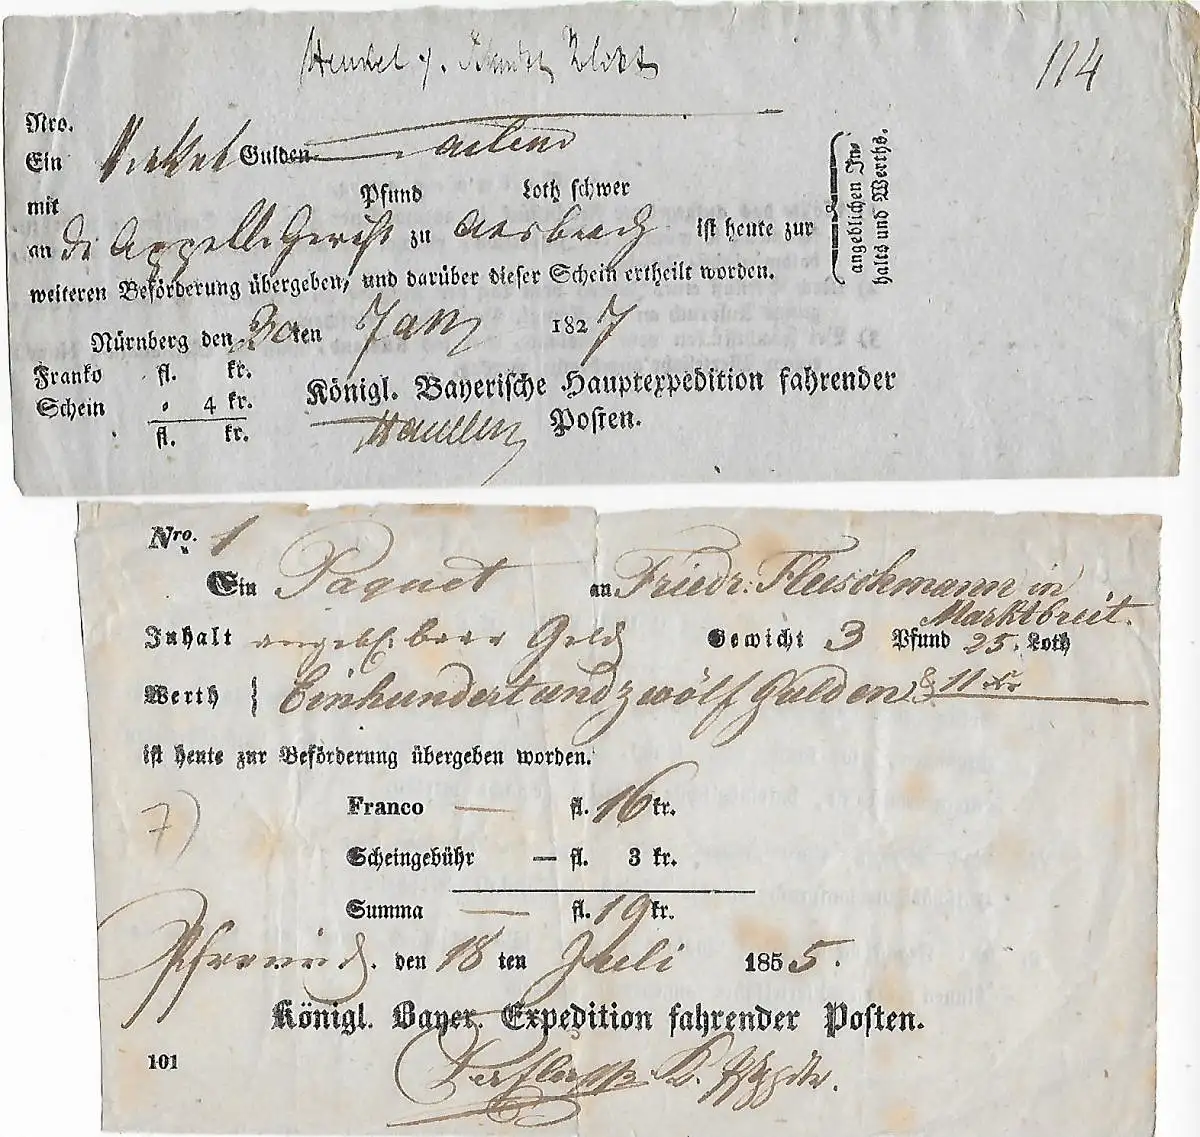 114
Nro.
Ein Gulden
mit Pfund Loth schwer
an zu ist heute zur
angeblichen In-
halts und Werths.
weiteren Beförderung übergeben, und darüber dieser Schein ertheilt worden.
Nürnberg den 30ten Jan 1827
Franko fl. kr.
Schein " 4 kr.
fl. kr.
Königl. Bayerische Hauptexpedition fahrender
Posten.
Nro. 1
Ein Paquet an Friedr: Fleischmann in
Marktbreit.
Inhalt baar Geld Gewicht 3 Pfund 25. Loth
Werth { Einhundertundzwölf Gulden & 11 Kr
ist heute zur Beförderung übergeben worden.
7)
Franco — fl. 16 kr.
Scheingebühr — fl. 3 kr.
Summa — fl. 19 kr.
den 18 ten Juli 1855.
Königl. Bayer. Expedition fahrender Posten.
101